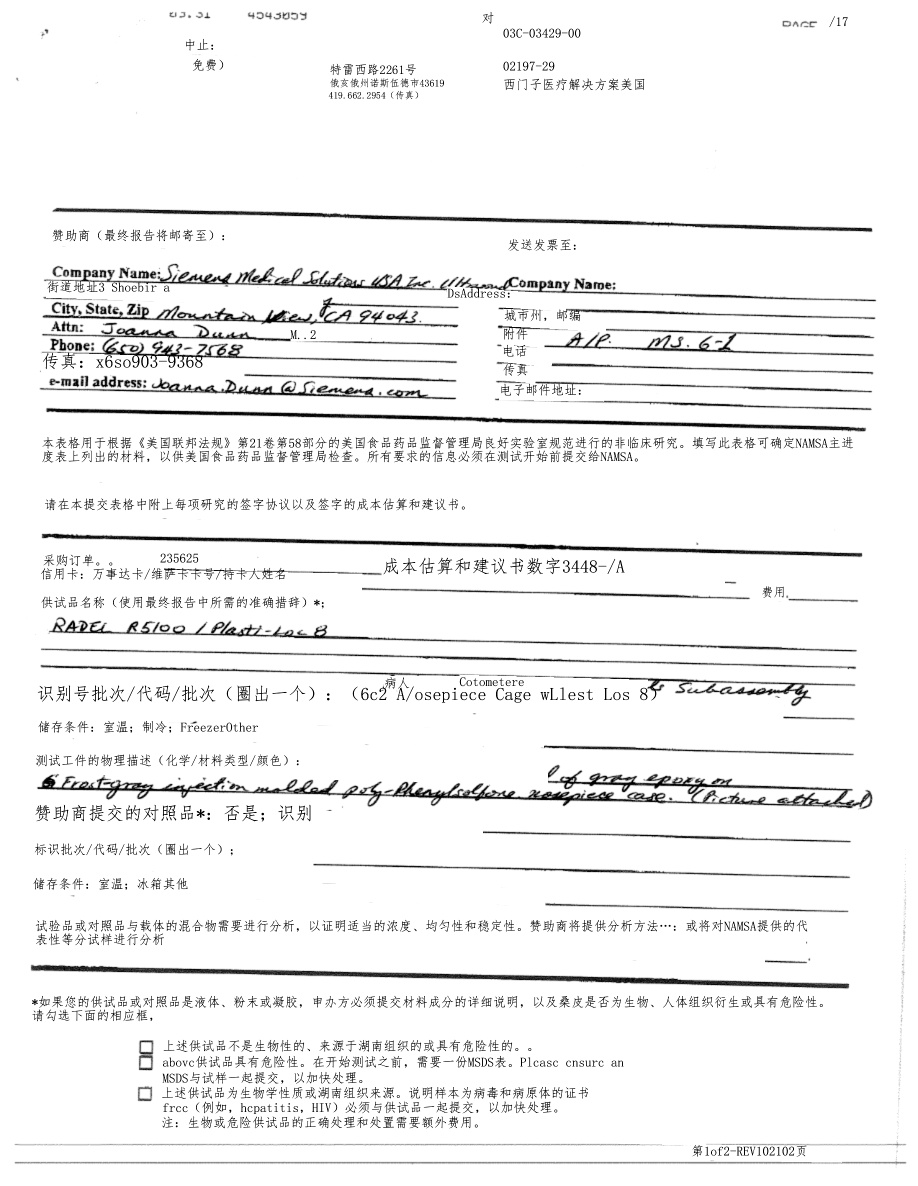 03.31 4543659 对 PAGE /17
03C-03429-00
中止:
免费)
特雷西路2261号 02197-29
俄亥俄州诺斯伍德市43619 西门子医疗解决方案美国
419.662.2954(传真)
赞助商(最终报告将邮寄至): 发送发票至:
Company Name: Siemens Medical Solutions USA Inc. Ultrasound Company Name:
街道地址3 Shoebir a DsAddress:
City, State, Zip Mountain View, CA 94043. 城市州,邮编
Attn: Joanna Dunn M..2 附件 A/P. MS. 6-1
Phone: (650) 943-7568 电话
传真: x6so903-9368 传真
e-mail address: Joanna.Dunn@Siemens.com 电子邮件地址:
本表格用于根据《美国联邦法规》第21卷第58部分的美国食品药品监督管理局良好实验室规范进行的非临床研究。填写此表格可确定NAMSA主进
度表上列出的材料,以供美国食品药品监督管理局检查。所有要求的信息必须在测试开始前提交给NAMSA。
请在本提交表格中附上每项研究的签字协议以及签字的成本估算和建议书。
采购订单。。 235625 成本估算和建议书数字3448-/A
信用卡:万事达卡/维萨卡卡号/持卡人姓名
费用
供试品名称(使用最终报告中所需的准确措辞)*;
RADEL R5100 / Plasti-Loc 8
病人 Cotometere
识别号批次/代码/批次(圈出一个):(6c2 A/osepiece Cage wLlest Los 8) Subassembly
储存条件:室温;制冷;FreezerOther
测试工件的物理描述(化学/材料类型/颜色):
of gray epoxy on
Frost-gray injection molded poly-Phenylsolpone nosepiece case. (Picture attached)
赞助商提交的对照品*:否是;识别
标识批次/代码/批次(圈出一个);
储存条件:室温;冰箱其他
试验品或对照品与载体的混合物需要进行分析,以证明适当的浓度、均匀性和稳定性。赞助商将提供分析方法…:或将对NAMSA提供的代
表性等分试样进行分析
*如果您的供试品或对照品是液体、粉末或凝胶,申办方必须提交材料成分的详细说明,以及桑皮是否为生物、人体组织衍生或具有危险性。
请勾选下面的相应框,
上述供试品不是生物性的、来源于湖南组织的或具有危险性的。。
abovc供试品具有危险性。在开始测试之前,需要一份MSDS表。Plcasc cnsurc an
MSDS与试样一起提交,以加快处理。
上述供试品为生物学性质或湖南组织来源。说明样本为病毒和病原体的证书
frcc(例如,hcpatitis,HIV)必须与供试品一起提交,以加快处理。
注:生物或危险供试品的正确处理和处置需要额外费用。
第1of2-REV102102页